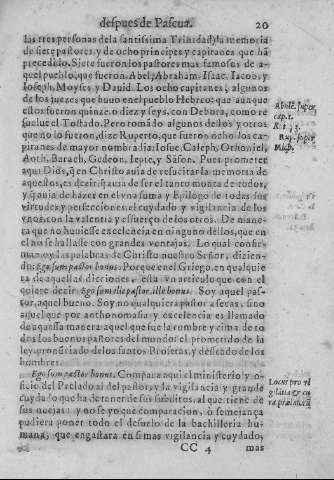 despues de Pascua. 20
las tres personas de la santissima Trinidad) la memoria
de siete pastores, y de ocho principes y capitanes que hã
precedido. Siete fueron los pastores mas famosos de a-
quel pueblo, que fueron. Abel, Abraham, Isaac, Iacob, y
Ioseph, Moyses y Dauid. Los ocho capitanes, algunos
de los juezes que huuo en el pueblo Hebreo: que aunque
estos fueron quinze, o diez y seys, con Debora, como re
suelue el Tostado. Pero tomãdo algunos dellos y otros
que no lo fueron, dize Ruperto, que fueron ocho los ca-
pitanes de mayor nombradia; Iosue, Caleph, Othoniel,
Aoth, Barach, Gedeon, Iepte, y Sãson. Pues prometer
aqui Dios, q̃ en Christo auia de resucitar la memoria de
aquestos, es dezir q̃ auia de ser el tanto monta de todos,
y q̃ auia de hazer en el vna suma y Epilogo de todas sus
virtudes y perfecciones, el cuydado y vigilancia de los
vnos, con la valentia y esfuerço de los otros. De mane-
ra que no huuiesse excelencia en ninguno dellos, que en
el no se hallasse con grandes ventajas. Lo qual confir-
man oy las palabras de Christo nuestro Señor, dizien-
do: Ego sum pastor bonus. Porque en el Griego, en qualquie
ra de aquestas dicciones, esta vn articulo que con el
quiere dezir: Ego sum ille pastor, ille bonus. Soy aquel pas-
tor, aquel bueno. Soy no qualquiera pastor a secas, sino
aquel que por anthonomasia y excelencia es llamado
de aquesta manera: aquel que fue la nombre y cima de to-
dos los buenos pastores del mundo: el prometido de la
ley, profetizado de los santos Profetas, y desseado de los
hombres.
Ego sum pastor bonus. Compara aqui el ministerio y o-
ficio del Prelado al del pastor, y la vigilancia y grande
cuydado que ha de tener de sus subditos, al que tiene de
sus ouejas: y no se yo que comparacion, o semejança
pudiera poner todo el desuelo de la bachilleria hu-
mana, que engastara en si mas vigilancia y cuydado,
CC 4 mas
Abulẽ. super
cap. 1.
Rup. super
Mich.
Locus pro vi
gilãtia & cu
ra prælatorũ